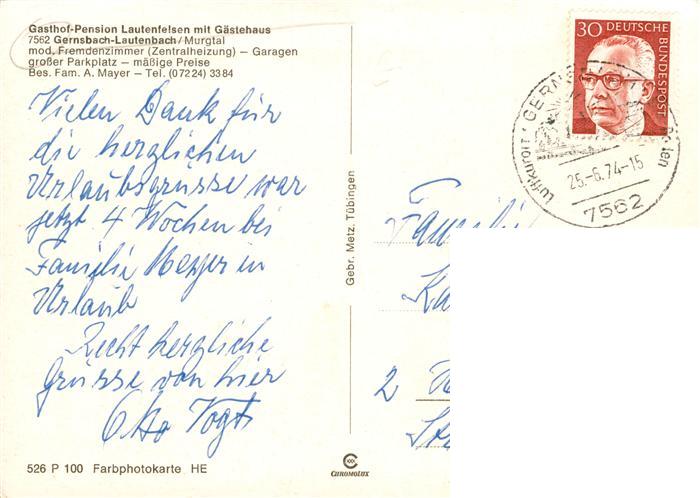 Gasthof-Pension Lautenfelsen mit Gästehaus
7562 Gernsbach-Lautenbach/Murgtal
mod. Fremdenzimmer (Zentralheizung) — Garagen
großer Parkplatz — mäßige Preise
Bes. Fam. A. Mayer — Tel. (07224) 3384
Vielen Dank für
die herzlichen
Urlaubsgrüsse war
jetzt 4 Wochen bei
Familie Meyer in
Urlaub
Recht herzliche
Grüsse von hier
Otto Vogt
526 P 100 Farbphotokarte HE
Gebr. Metz, Tübingen
CHROMOLUX
30 DEUTSCHE
BUNDESPOST
Luftkurort · GERNSB
25.-6.74-15
7562
Familie
2